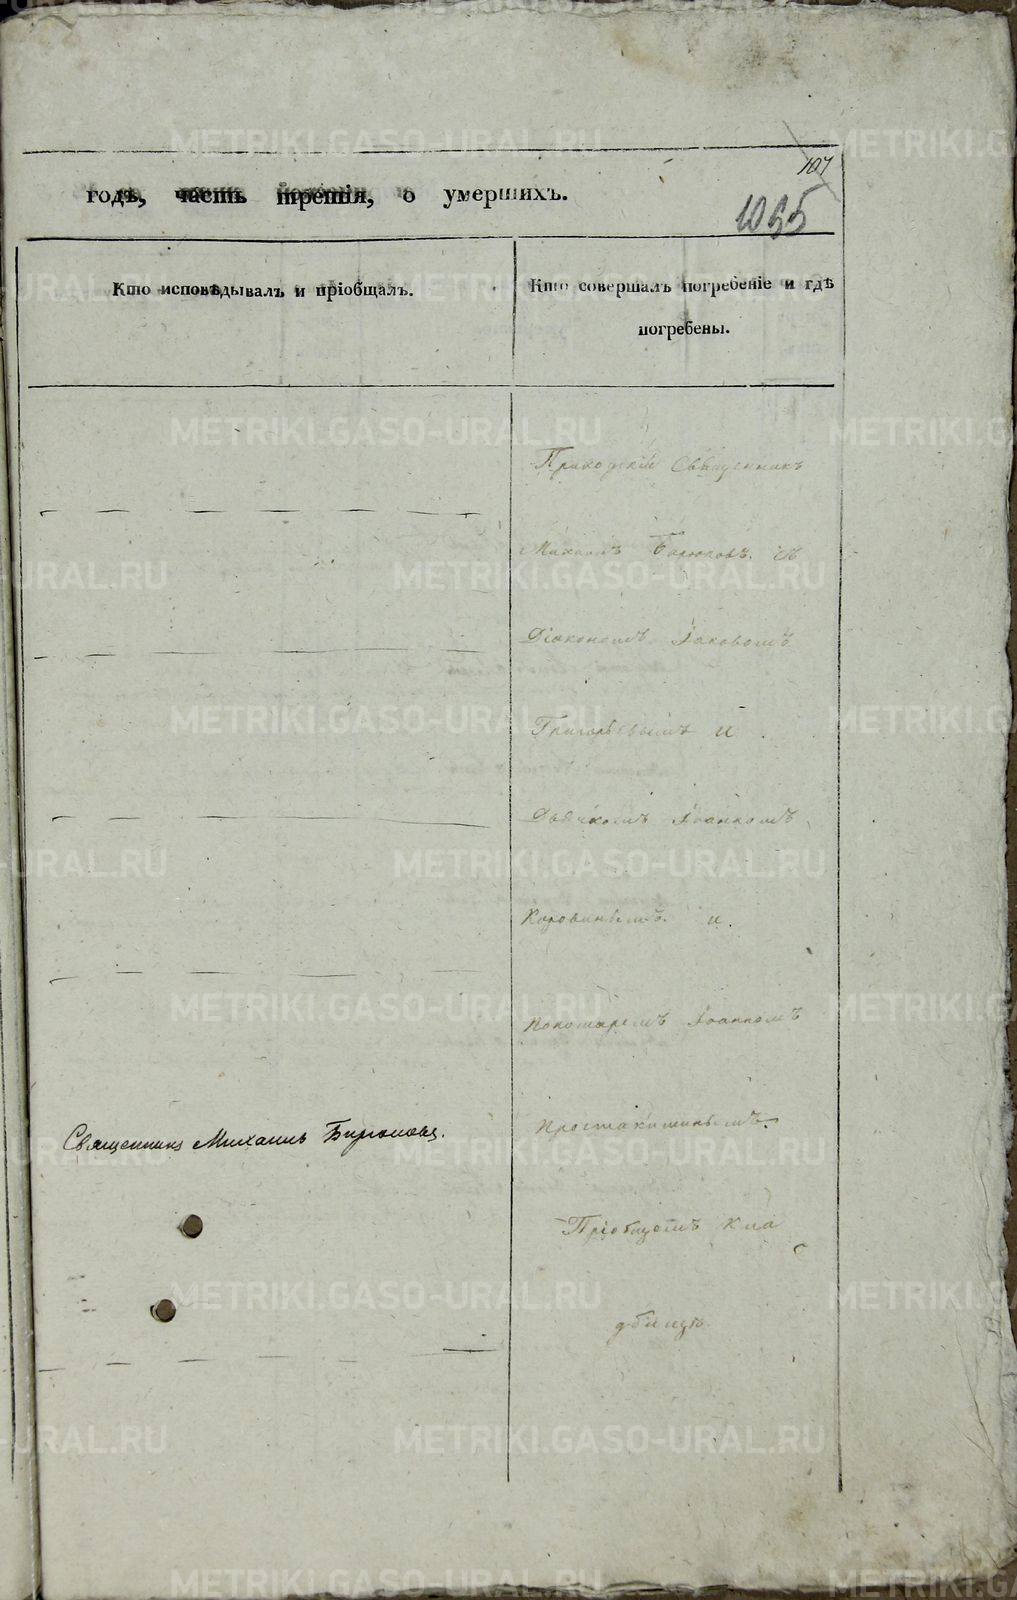 107
годѣ, часть третія, о умершихъ.
1035
Кто исповѣдывалъ и пріобщалъ.
Кто совершалъ погребеніе и гдѣ
погребены.
Приходскій Священникъ
Михаилъ Бирюковъ. съ
Діакономъ Іаковомъ
Григорьевымъ и
Дьячкомъ Іоанномъ
Коровинымъ. и.
Пономаремъ Іоанномъ
Священникъ Михаилъ Бирюковъ.
Простакишинымъ.
кла
дбищѣ.
METRIKI.GASO-URAL.RU